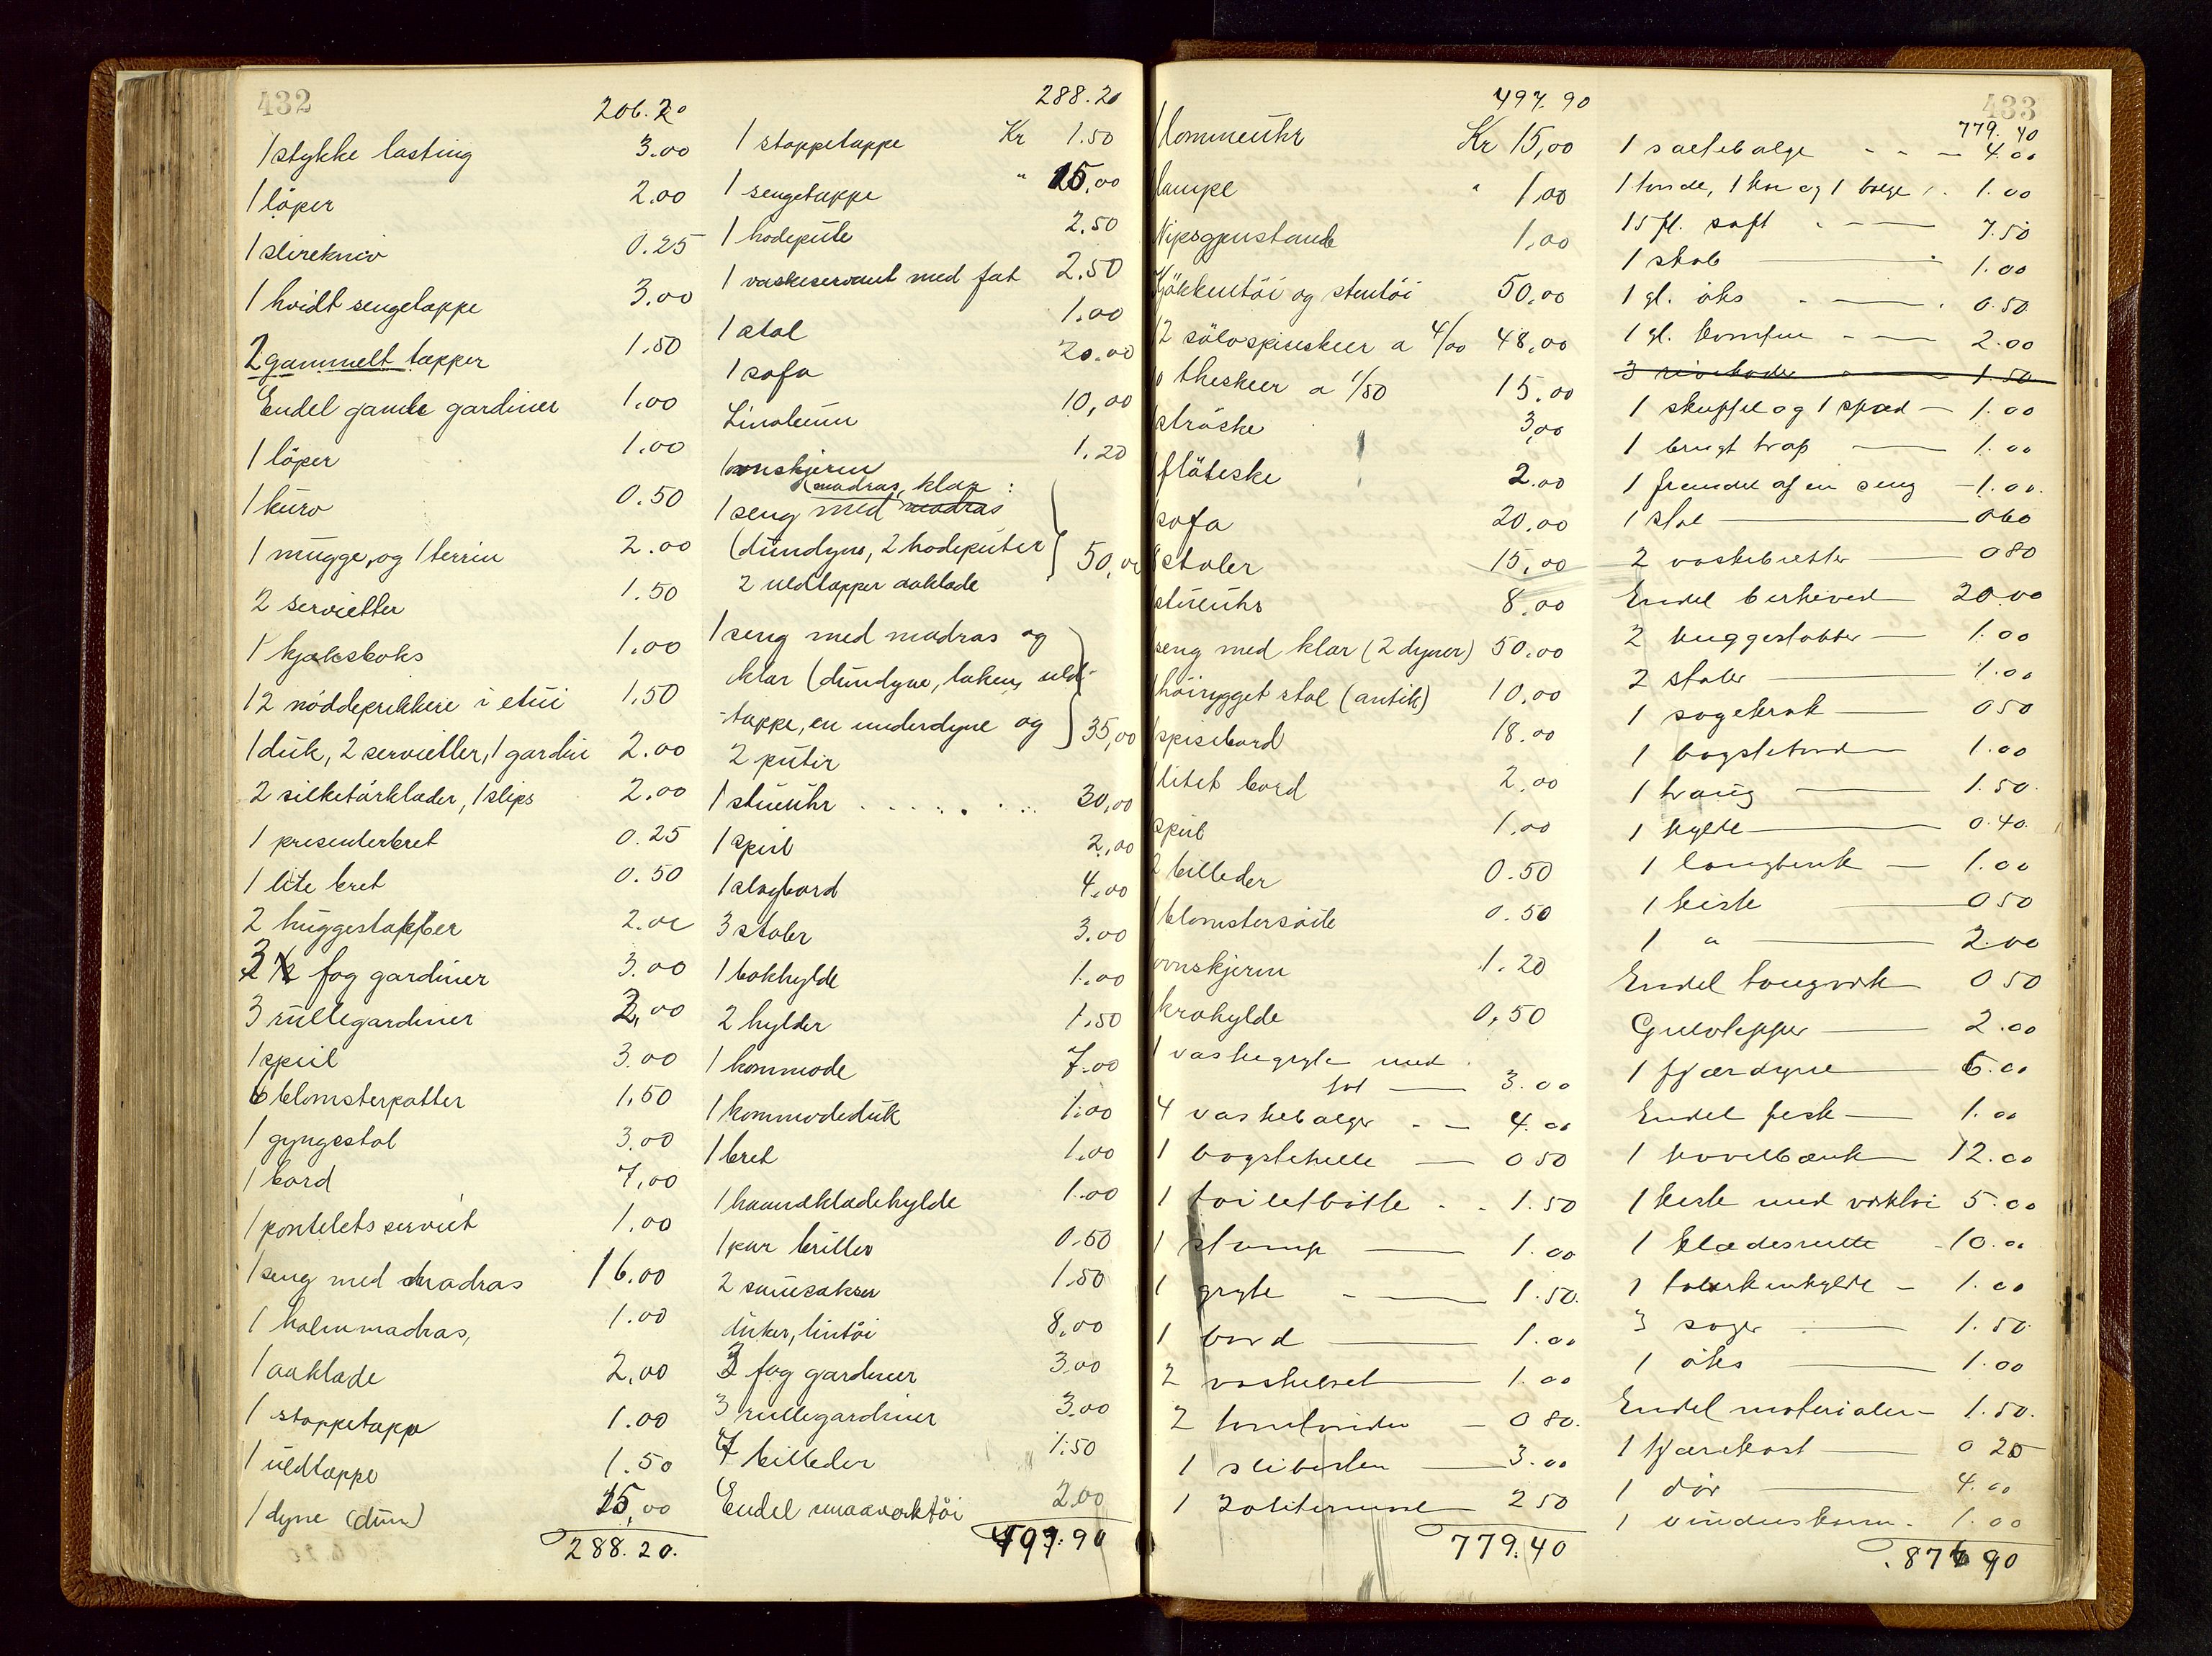 432
206.20
1 stykke lasting 3.00
1 löper 2.00
1 slirekniv 0.25
1 hvidt sengetæppe 3.00
2 gammelt tæpper 1.50
Endel gamle gardiner 1.00
1 löper 1.00
1 kurv 0.50
1 mugge, og 1 terrin 2.00
2 servietter 1.50
1 kjæksboks 1.00
12 nöddeprikkere i etui 1.50
1 duk, 2 servietter, 1 gardin 2.00
2 silketörklæder, 1 slips 2.00
1 presenterbret 0.25
1 lite bret 0.50
2 huggestabber 2.00
3 fag gardiner 3.00
3 rullegardiner 3,00
1 speil 3.00
6 blomsterpotter 1,50
1 gyngestol 3.00
1 bord 7,00
1 pontelets serviet 1.00
1 seng med madras 16.00
1 halmmadras, 1.00
1 aaklæde 2,00
1 stoppetæppe 1.00
1 uldtæppe 1.50
1 dyne (dun) 15,00
288.20.
288.20
1 stoppetæppe Kr 1.50
1 sengetæppe " 15,00
1 hodepute 2.50
1 vaskeservant med fat 2.50
1 stol 1.00
1 sofa 20.00
Linoleum 10,00
1 ovnskjerm 1.20
(madras, klær :
1 seng med madras
(dundyne, 2 hodeputer 50,00
2 uldtæpper aaklæde
1 seng med madras og
klær (dundyne, laken, uld-
tæppe, en underdyne og 35,00
2 puter
1 stueuhr . . . . . . . . 30,00
1 speil 2,00
1 slagbord 4.00
3 stoler 3.00
1 bokhylde 1.00
2 hylder 1.50
1 kommode 7.00
1 kommodeduk 1.00
1 bret 1.00
1 haandklædehylde 1.00
1 par briller 0.50
2 sauesakser 1.50
duker, lintöi 8,00
3 fag gardiner 3.00
3 rullegardiner 3.00
7 billeder 1.50
Endel smaaverktöi 2.00
497.90
497.90
1 lommeuhr Kr 15,00
lampe " 1,00
Nipsgjenstande 1,00
Kjökkentöi og stentöi 50,00
12 sölvspiseskeer a 4/00 48,00
theskeer a 1/50 15.00
ströske 3,00
flöteske 2.00
sofa 20.00
stoler 15,00
stueuhr 8,00
seng med klær (2 dyner) 50.00
höirygget stol (antik) 10,00
spisebord 18.00
litet bord 2,00
speil 1,00
2 billeder 0.50
blomstersöile 0.50
ovnskjerm 1.20
krohylde 0,50
1 vaskegryte med
fot 3.00
4 vaskebalger 4.00
1 bagstehelle 0 50
1 toiletbötte 1.50
1 stamp 1.00
1 gryte 1.50.
1 bord 1.00
2 vaskebret 1.00
2 tomtønder 0 80.
1 slibesten 3.00
1 2 50
779.40
433
779.40
1 saltebalge 4.00
1 tønde, 1 kar og 1 balge 1.00
15 fl. saft 7.50
1 skab 1.00
1 gl. öks 0.50
1 gl. komfur 2.00
3 1.50
1 skuffel og 1 spad 1.00
1 brugt trap 1.00
1 fremdel af en seng 1.00.
1 stol 0 60
2 vaskebretter 0 80
Endel birkeved 20.00
2 huggestabber 1.00
2 stoler 1.00
1 sagekrak 0 50
1 bagstebord 1.00
1 traug 1.50.
1 hylde 0.40.
1 langbenk 1.00
1 kiste 0 50
1 " 2.00
Endel taugverk 0 50
Gulvtepper 2.00
1 fjærdyne 6.00
Endel fisk 1.00
1 høvelbænk 12.00
1 kiste med verktøi 5.00
1 klædesrulle 10.00
1 talerkenhylde 1.00
3 sager 1.50
1 öks 1.00
Endel materialer 1.50.
1 fjærekost 0 25
1 dör 4.00
1 vinduskarm 1.00
876 90